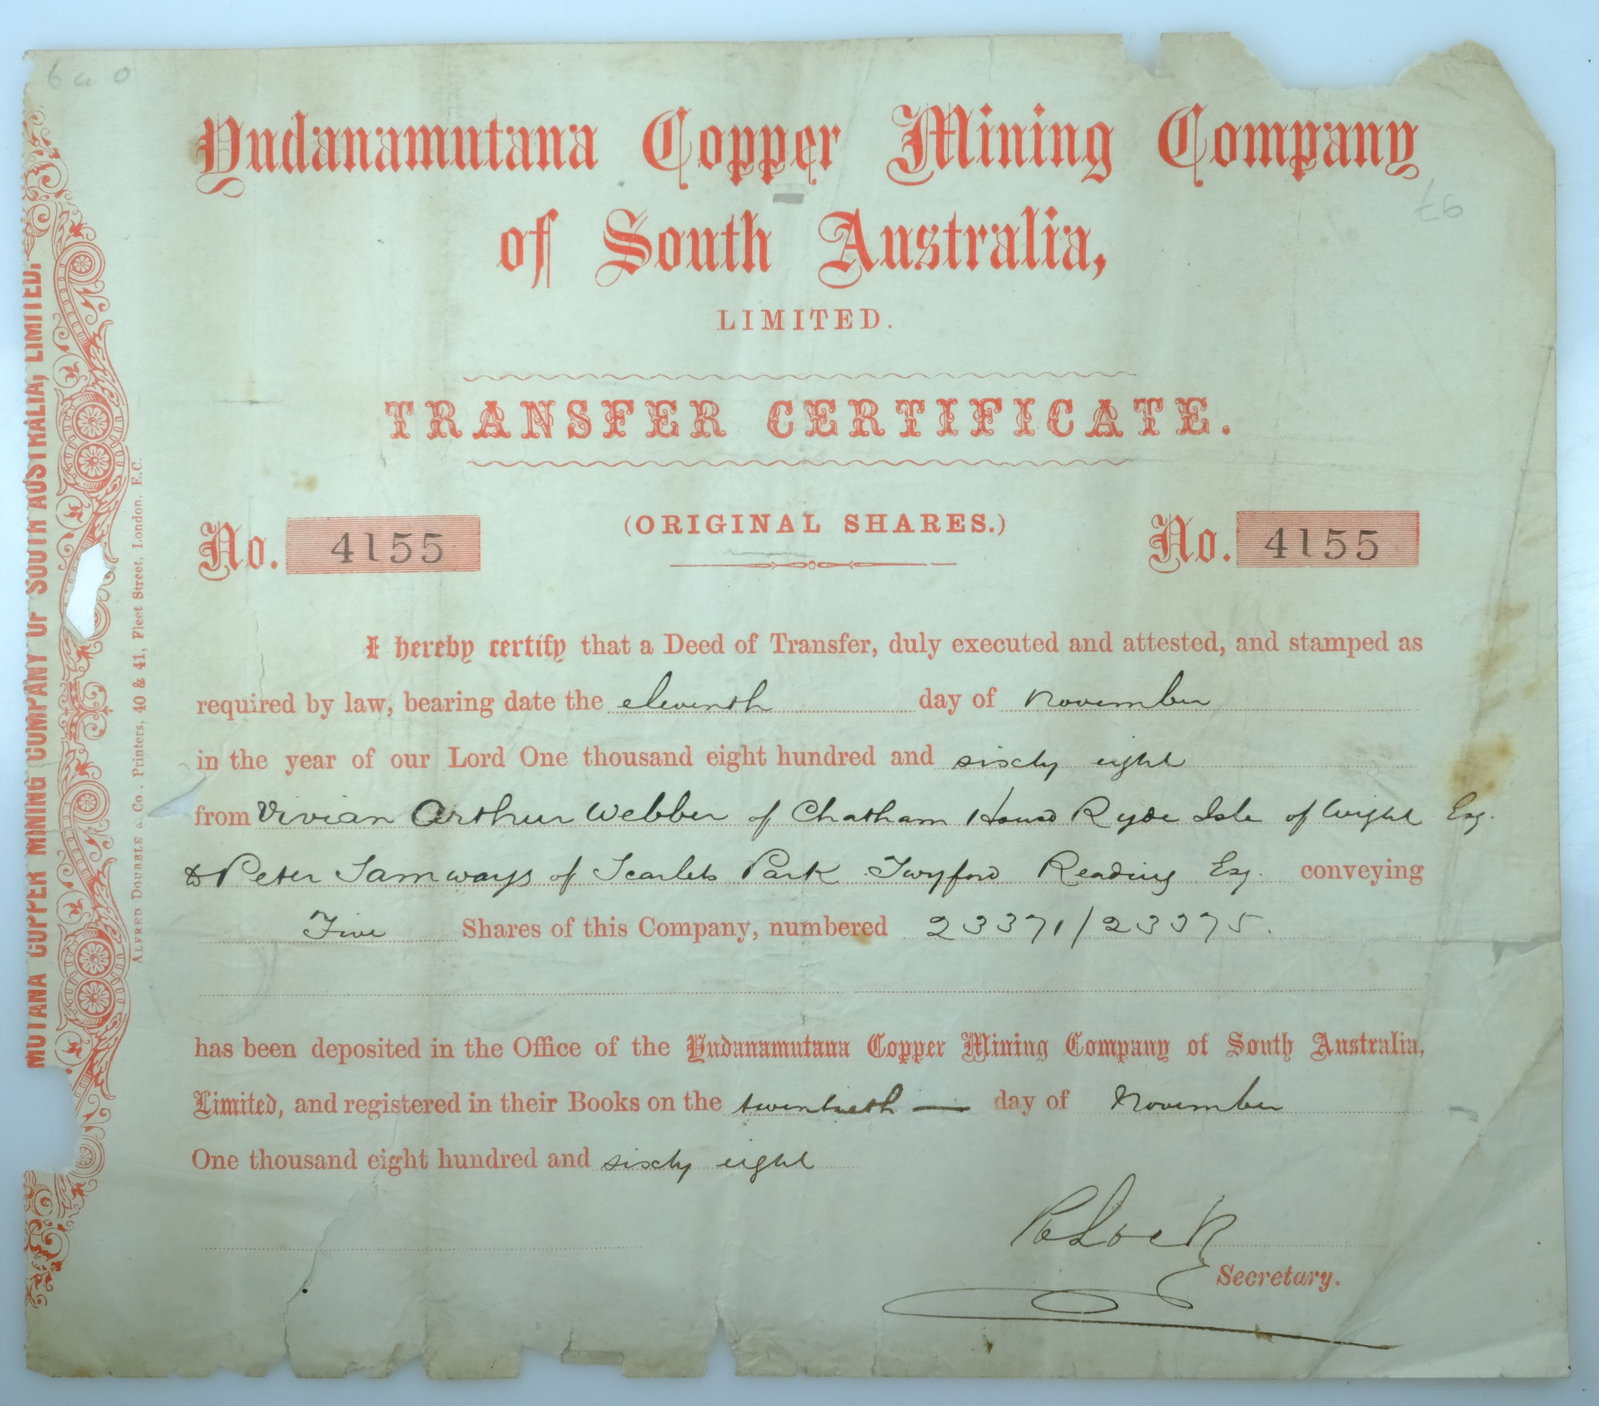 6 a 0
Yudanamutana Copper Mining Company
of South Australia,
LIMITED.
£6
TRANSFER CERTIFICATE.
(ORIGINAL SHARES.)
No. 4155
No. 4155
I hereby certify that a Deed of Transfer, duly executed and attested, and stamped as
required by law, bearing date the eleventh day of November
in the year of our Lord One thousand eight hundred and sixty eight
from Vivian Arthur Webber of Chatham House Ryde Isle of Wight Esq.
to Peter Samways of Scarlets Park Twyford Reading Esq. conveying
Five Shares of this Company, numbered 23371/23375.
has been deposited in the Office of the Yudanamutana Copper Mining Company of South Australia,
Limited, and registered in their Books on the twentieth — day of November
One thousand eight hundred and sixty eight
Secretary.
MUTANA COPPER MINING COMPANY OF SOUTH AUSTRALIA, LIMITED.
ALFRED DOUBBLE & Co., Printers, 40 & 41, Fleet Street, London. E.C.